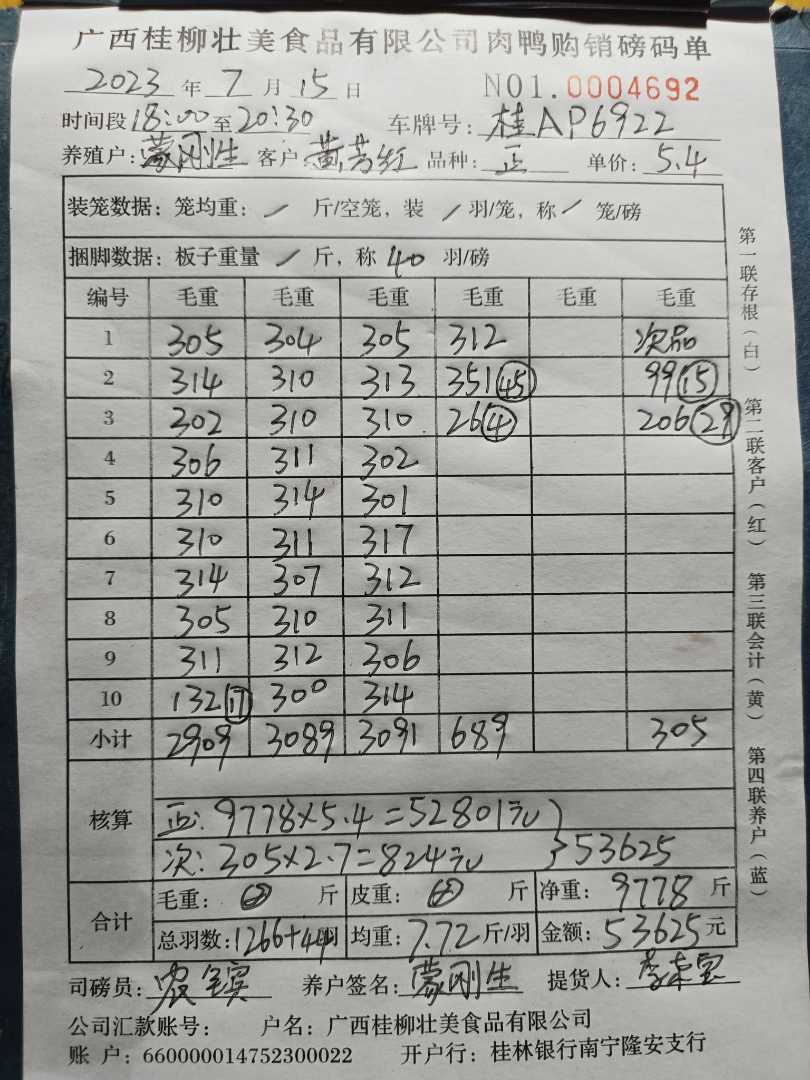 广西桂柳壮美食品有限公司肉鸭购销磅码单
2023 年 7 月 15 日 NO1.0004692
时间段 18:00 至 20:30 车牌号: 桂AP6922
养殖户: 蒙刚生 客户 黄芳红 品种: 正 单价: 5.4
装笼数据: 笼均重: / 斤/空笼, 装 / 羽/笼, 称 / 笼/磅
捆脚数据: 板子重量 / 斤, 称 40 羽/磅
编号 毛重 毛重 毛重 毛重 毛重 毛重
1 305 304 305 312 次品
2 314 310 313 351 45 99 15
3 302 310 310 26 4 206 29
4 306 311 302
5 310 314 301
6 310 311 317
7 314 307 312
8 305 310 311
9 311 312 306
10 132 17 300 314
小计 2909 3089 3091 689 305
核算
正: 9778×5.4=52801元
次: 305×2.7=824元 }53625
合计
毛重: 斤 皮重: 斤 净重: 9778 斤
总羽数: 1266+44 羽 均重: 7.72 斤/羽 金额: 53625 元
司磅员: 农宝宾 养户签名: 蒙刚生 提货人:
公司汇款账号: 户名: 广西桂柳壮美食品有限公司
账 户: 660000014752300022 开户行: 桂林银行南宁隆安支行
第一联存根(白) 第二联客户(红) 第三联会计(黄) 第四联养户(蓝)